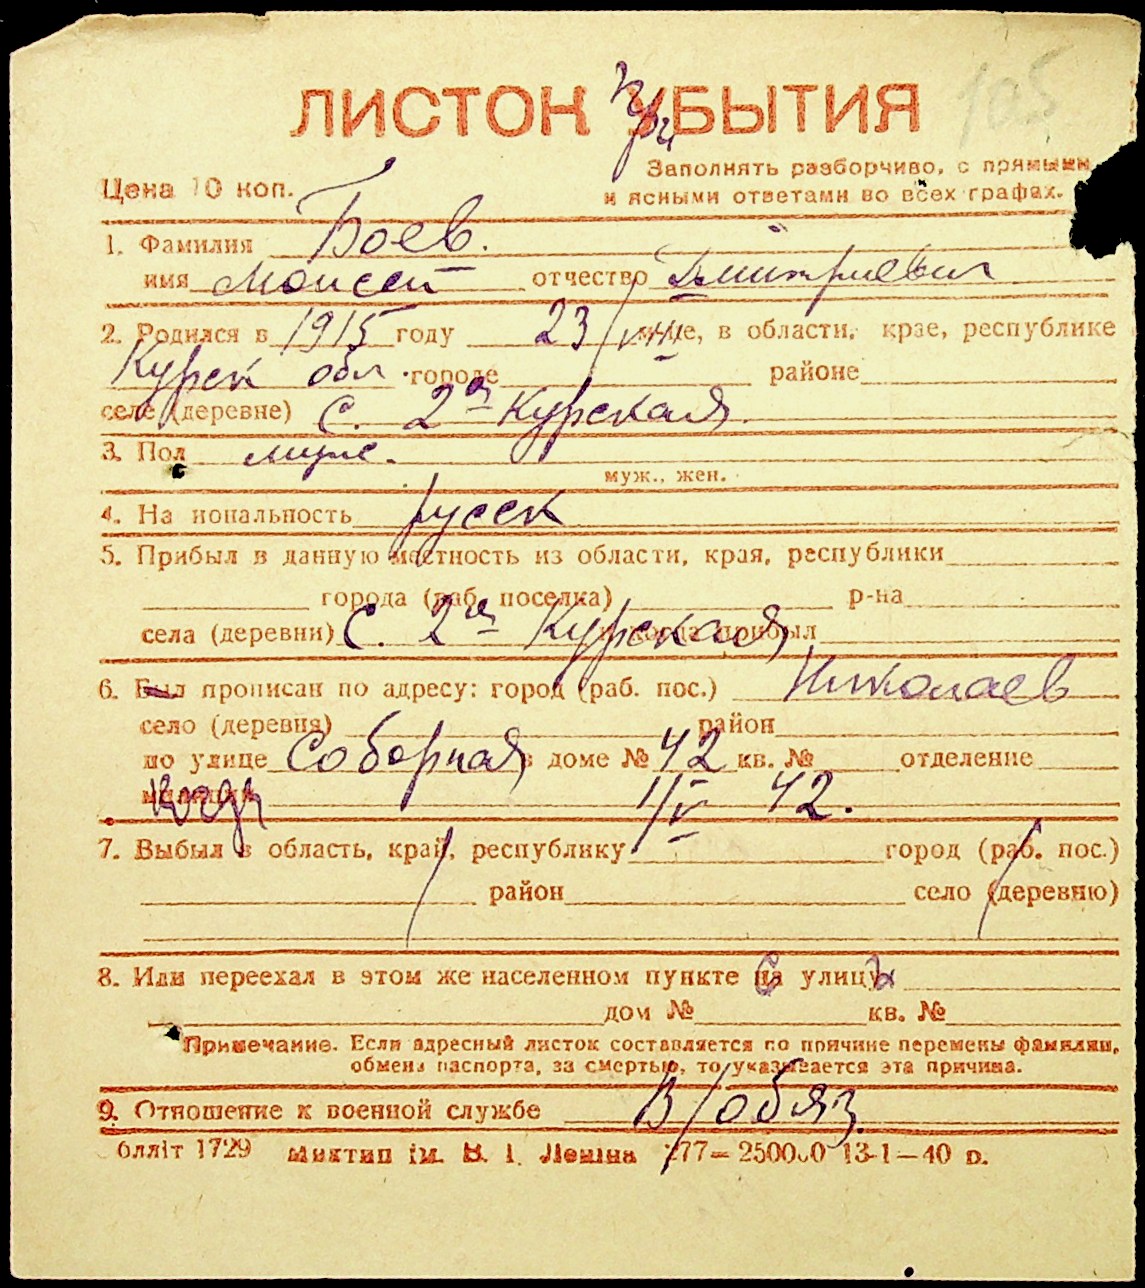 105
ЛИСТОК при БЫТИЯ
Заполнять разборчиво, с прямыми
Цена 10 коп.
и ясными ответами во всех графах.
1. Фамилия Боев.
имя Моисей отчество Дмитриевич
2. Родился в 1915 году 23/VIII це, в области, крае, республике
Курск обл. городе районе
селе (деревне) с. 2ая Курская.
3. Пол муж.
муж., жен.
4. На иональность русск
5. Прибыл в данную местность из области, края, республики
города (раб. поселка) р-на
села (деревни) с. 2ая Курская когда прибыл
6. Был прописан по адресу: город (раб. пос.) Николаев
село (деревня) район
по улице Соборная в доме № 42 кв. № отделение
милиции когда 1/V 42.
7. Выбыл в область, край, республику город (раб. пос.)
район село (деревню)
8. Или переехал в этом же населенном пункте с улицы
дом № кв. №
Примечание. Если адресный листок составляется по причине перемены фамилии,
обмена паспорта, за смертью, то указывается эта причина.
9. Отношение к военной службе в/обяз.
блліт 1729 Миктип ім. В. І. Леніна 277— 250000 13-1—40 р.